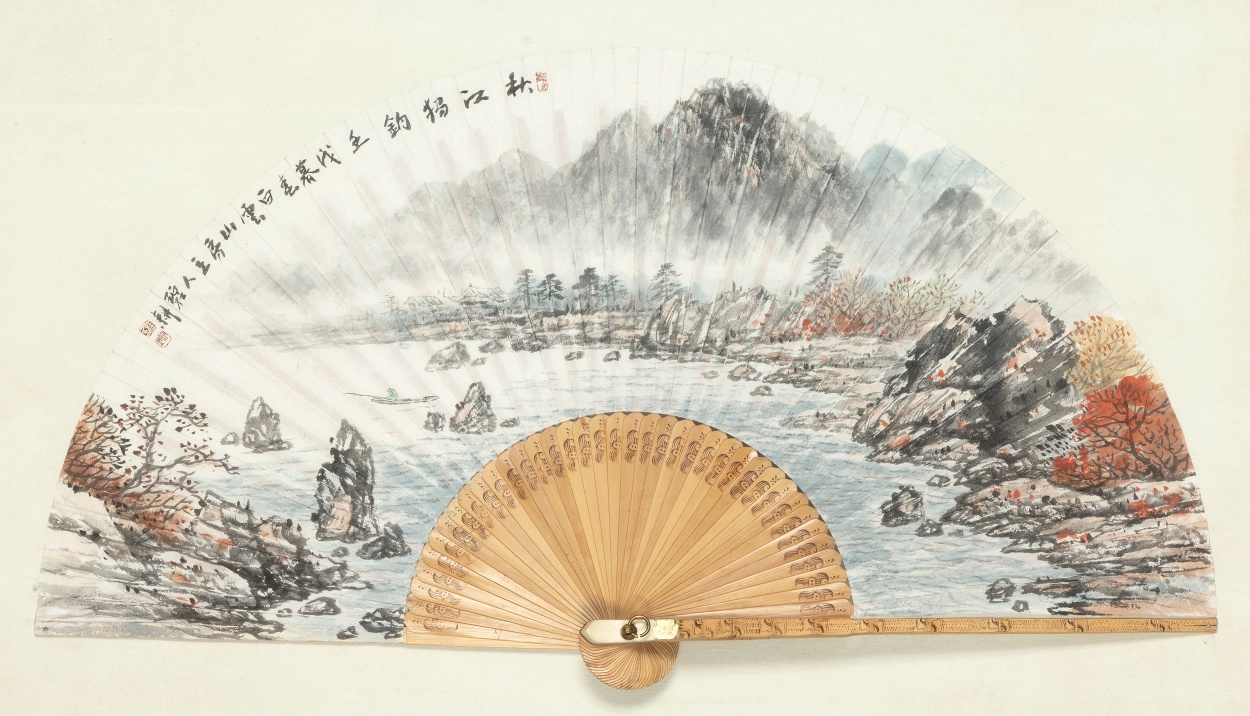 秋江獨釣壬戌暮春白雲山房主人